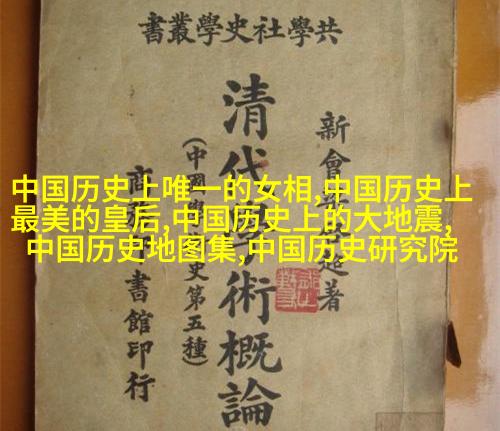 共學社史學叢書
新會著
清代術概論
(中國學史第五種)
商書館印行
中国历史上唯一的女相,中国历史上
最美的皇后,中国历史上的大地震,
中国历史地图集,中国历史研究院